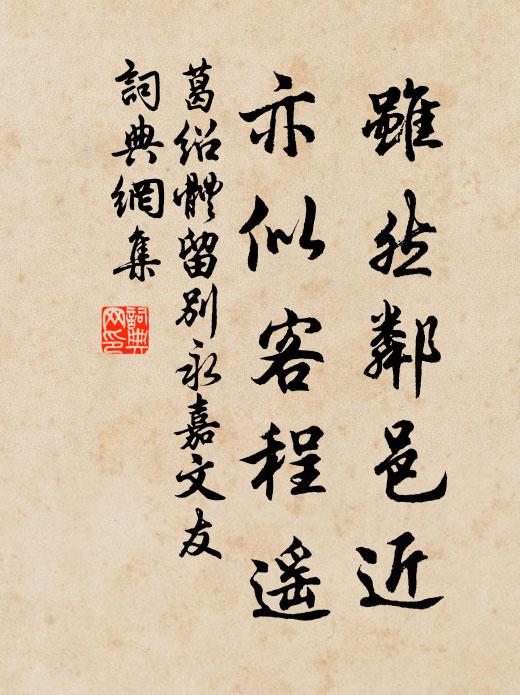 雖然鄰邑近
亦似客程遥
葛绍體留别永嘉文友
詞典網集
詞典网印